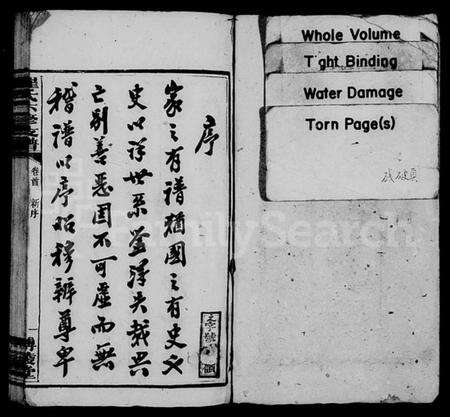 Whole Volume
Tight Binding
Water Damage
Torn Page(s)
残破頁
序
家之有譜猶國之有史也
史以詳世系并清失載與
亡别善惡固不可虚而無
稽譜以序昭穆辨尊卑
氏宗譜
卷首
新序
一
字號
領
FamilySearch